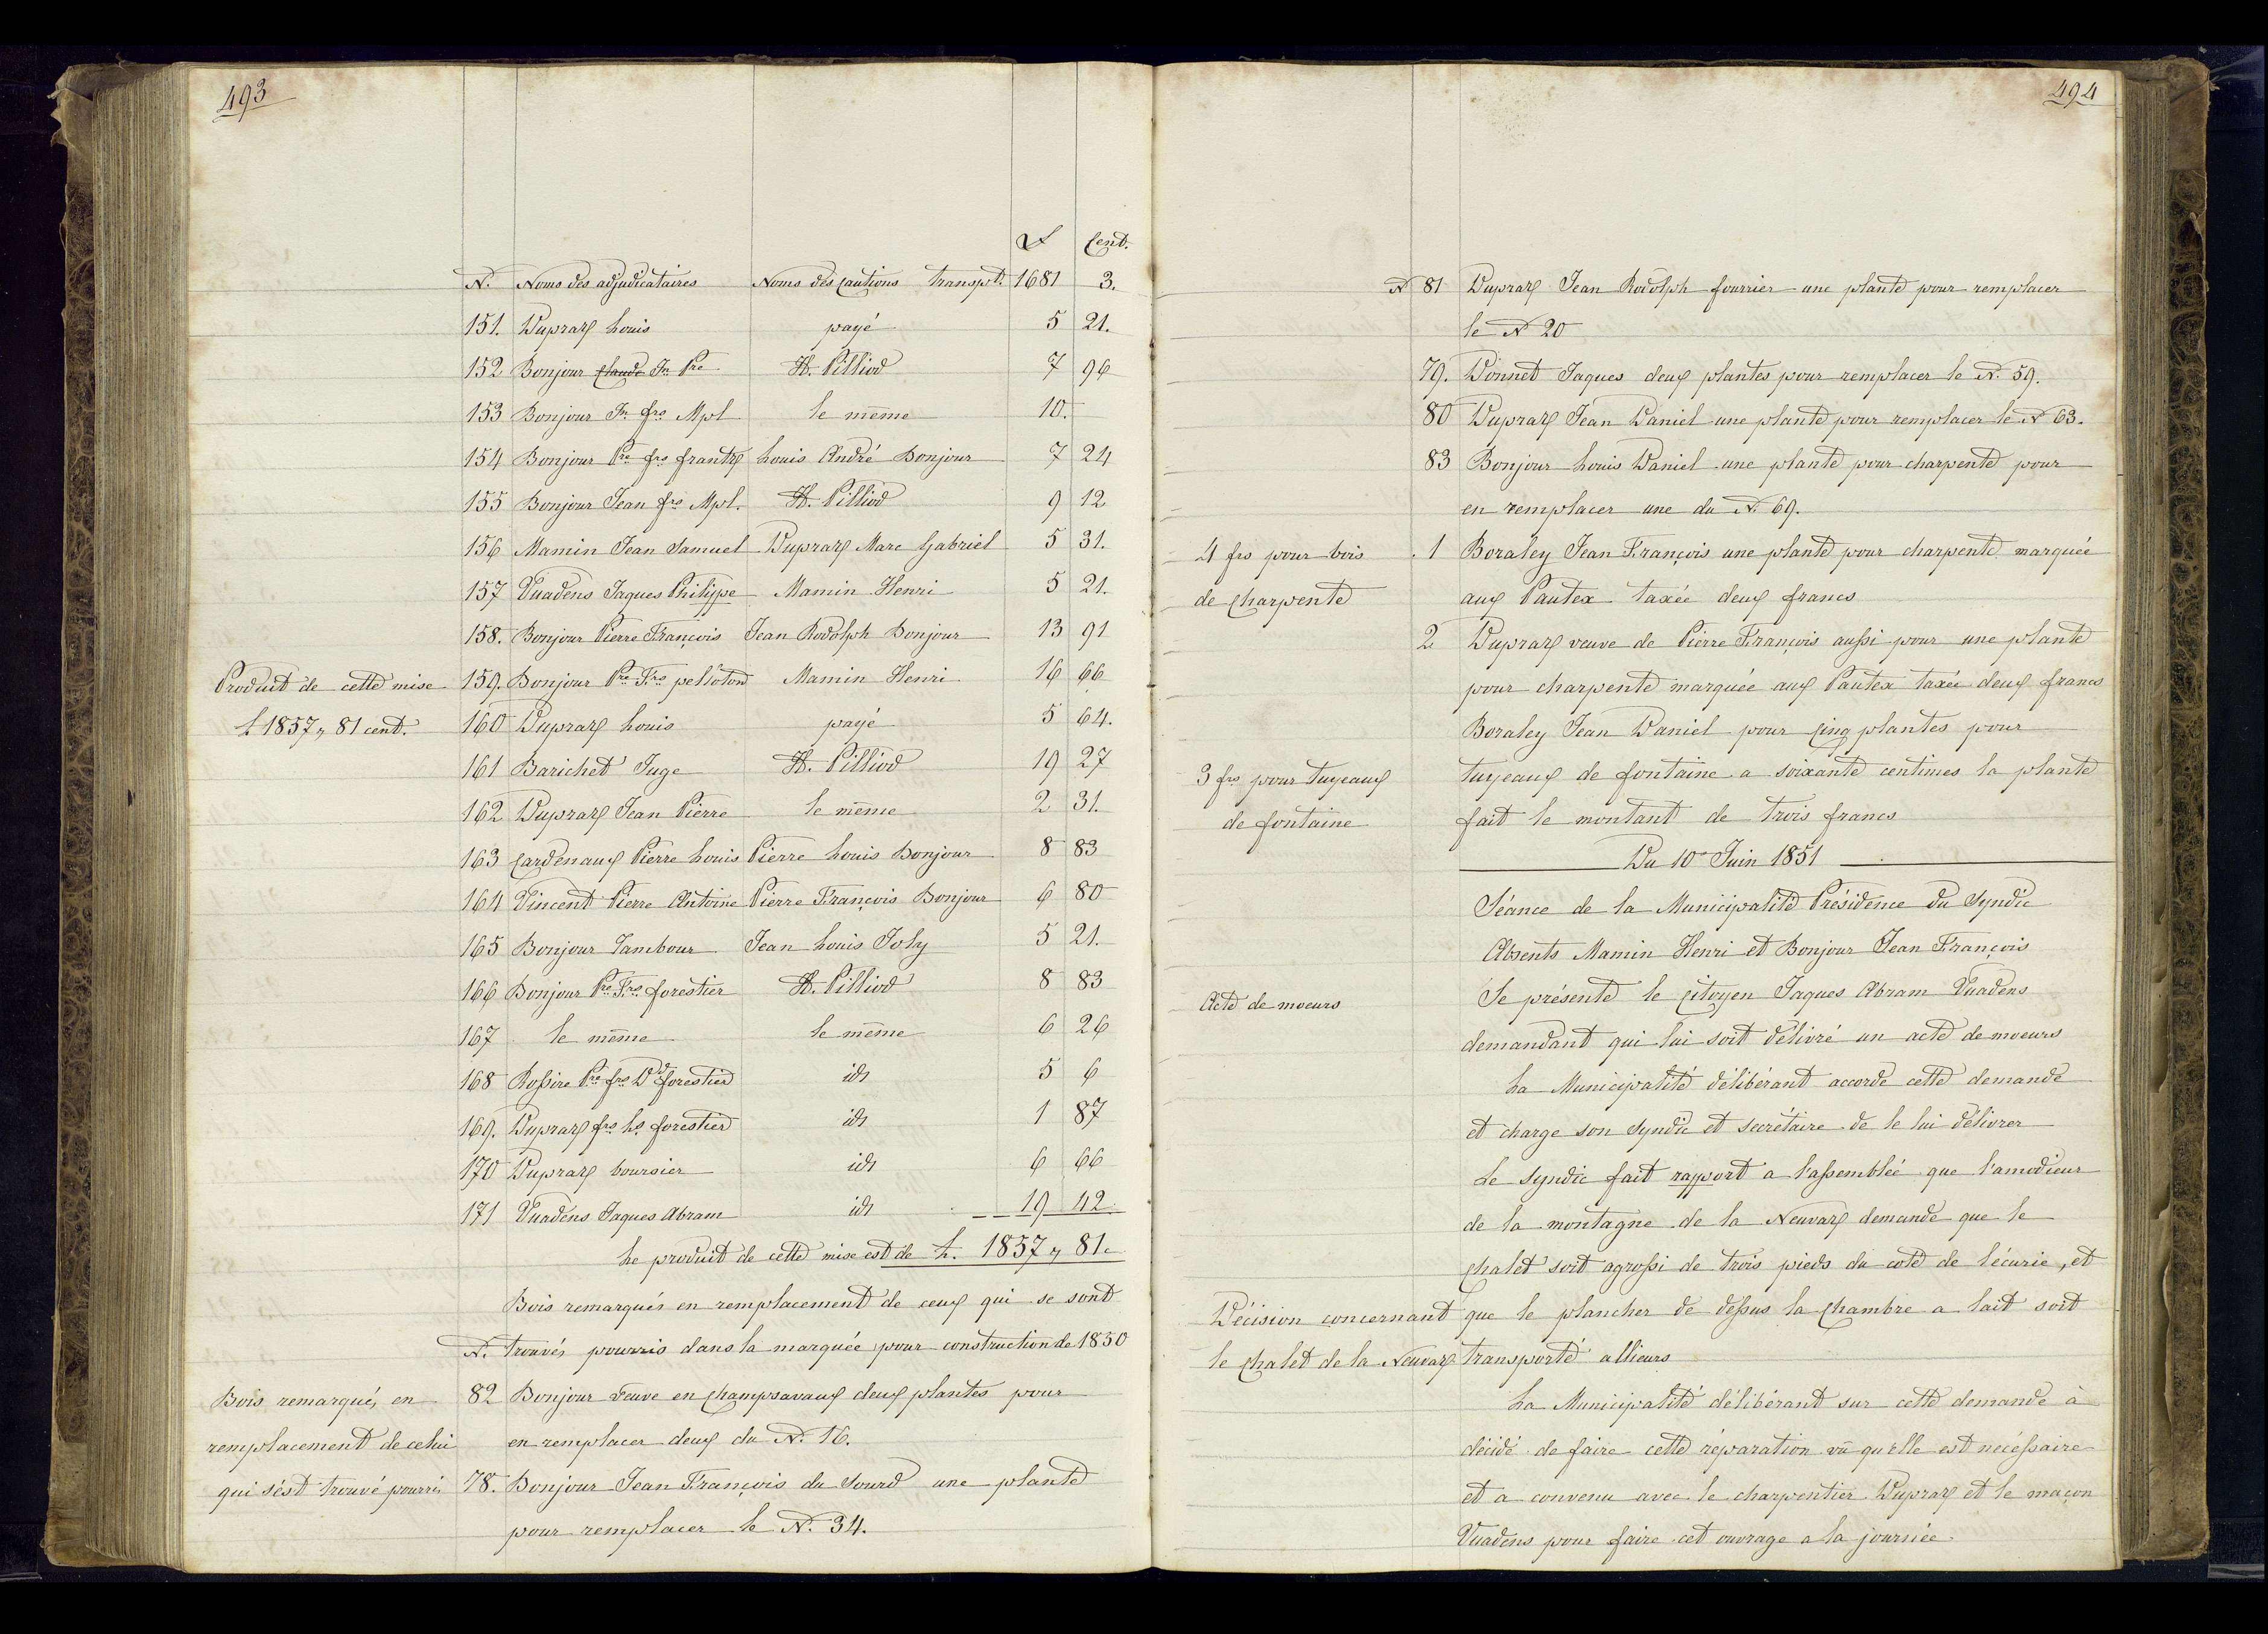 493
L Cent.
N. Noms des adjudicataires Noms des cautions transpt. 1681 3.
151. Dupraz Louis payé 5 21.
152 Bonjour Claude Jn Pre H. Pilliod 7 96
153 Bonjour Jn frs Mpl le même 10.
154 Bonjour Pre frs frantz Louis André Bonjour 7 24
155 Bonjour Jean frs Mpl. H. Pilliod 9 12
156 Mamin Jean Samuel Dupraz Marc Gabriel 5 31.
157 Vuadens Jaques Philippe Mamin Henri 5 21.
158. Bonjour Pierre François Jean Rodolph Bonjour 13 91
Produit de cette mise 159. Bonjour Pre Frs pelloton Mamin Henri 16 66
L 1857 „ 81 cent. 160 Dupraz Louis payé 5 64.
161 Barichet Juge H. Pilliod 19 27
162 Dupraz Jean Pierre le même 2 31.
163 Cardenaux Pierre Louis Pierre Louis Bonjour 8 83
164 Vincent Pierre Antoine Pierre François Bonjour 6 80
165 Bonjour Tambour Jean Louis Joly 5 21.
166 Bonjour Pre Frs forestier H. Pilliod 8 83
167 le même le même 6 26
168 Rossire Pre frs Dd forestier id 5 6
169. Dupraz frs Ls forestier id 1 87
170 Dupraz boursier id 6 66
171 Vuadens Jaques Abram id 19 42.
Le produit de cette mise est de L. 1857 „ 81.
Bois remarqués en remplacement de ceux qui se sont
N. trouvés pourris dans la marquée pour construction de 1850
Bois remarqué, en 82 Bonjour veuve en Champsavaux deux plantes pour
remplacement de celui en remplacer deux du N. 16.
qui s'est trouvé pourri 78. Bonjour Jean François du Sourd une plante
pour remplacer le N. 34.
494
N 81 Dupraz Jean Rodolph fourrier une plante pour remplacer
le N 20
79. Donnet Jaques deux plantes pour remplacer le N. 59.
80 Dupraz Jean Daniel une plante pour remplacer le N 63.
83 Bonjour Louis Daniel une plante pour charpente pour
en remplacer une du N. 69.
4 frs pour bois 1 Boraley Jean François une plante pour charpente marquée
de charpente aux Pautex taxée deux francs
2 Dupraz veuve de Pierre François aussi pour une plante
pour charpente marquée aux Pautex taxée deux francs
Boraley Jean Daniel pour cinq plantes pour
3 frs pour tuyeaux tuyeaux de fontaine a soixante centimes la plante
de fontaine fait le montant de trois francs
Du 10e Juin 1851
Séance de la Municipalité Présidence du Syndic
Absents Mamin Henri et Bonjour Jean François
Acte de moeurs Se présente le citoyen Jaques Abram Vuadens
demandant qui lui soit délivré un acte de moeurs
La Municipalité délibérant accorde cette demande
et charge son Syndic et secrétaire de le lui délivrer
Le Syndic fait rapport a l'assemblée que l'amodieur
de la montagne de la Neuvaz demande que le
chalet soit agrossi de trois pieds du coté de lécurie, et
Décision concernant que le plancher de dessus la chambre a lait soit
le chalet de la Neuvaz transporté allieurs
La Municipalité délibérant sur cette demande à
décidé de faire cette réparation vû qu'elle est necéssaire
et a convenu avec le charpentier Dupraz et le maçon
Vuadens pour faire cet ouvrage a la journée.